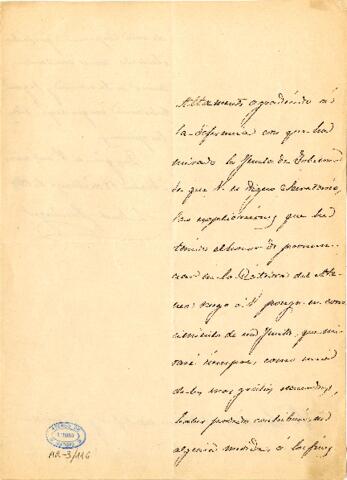 Altamente agradecido á
la deferencia con que ha
mirado la Junta de Gobierno
de que V. es digno Secretario,
las explicaciones que he
tenido el honor de pronun-
ciar en la Cátedra del Ate-
neo ruego á V. ponga en cono-
cimiento de esa Junta, que mi-
raré siempre, como uno
de los mas gratos recuerdos,
haber podido contribuir, en
alguna medida, á los fines
AR-3/116